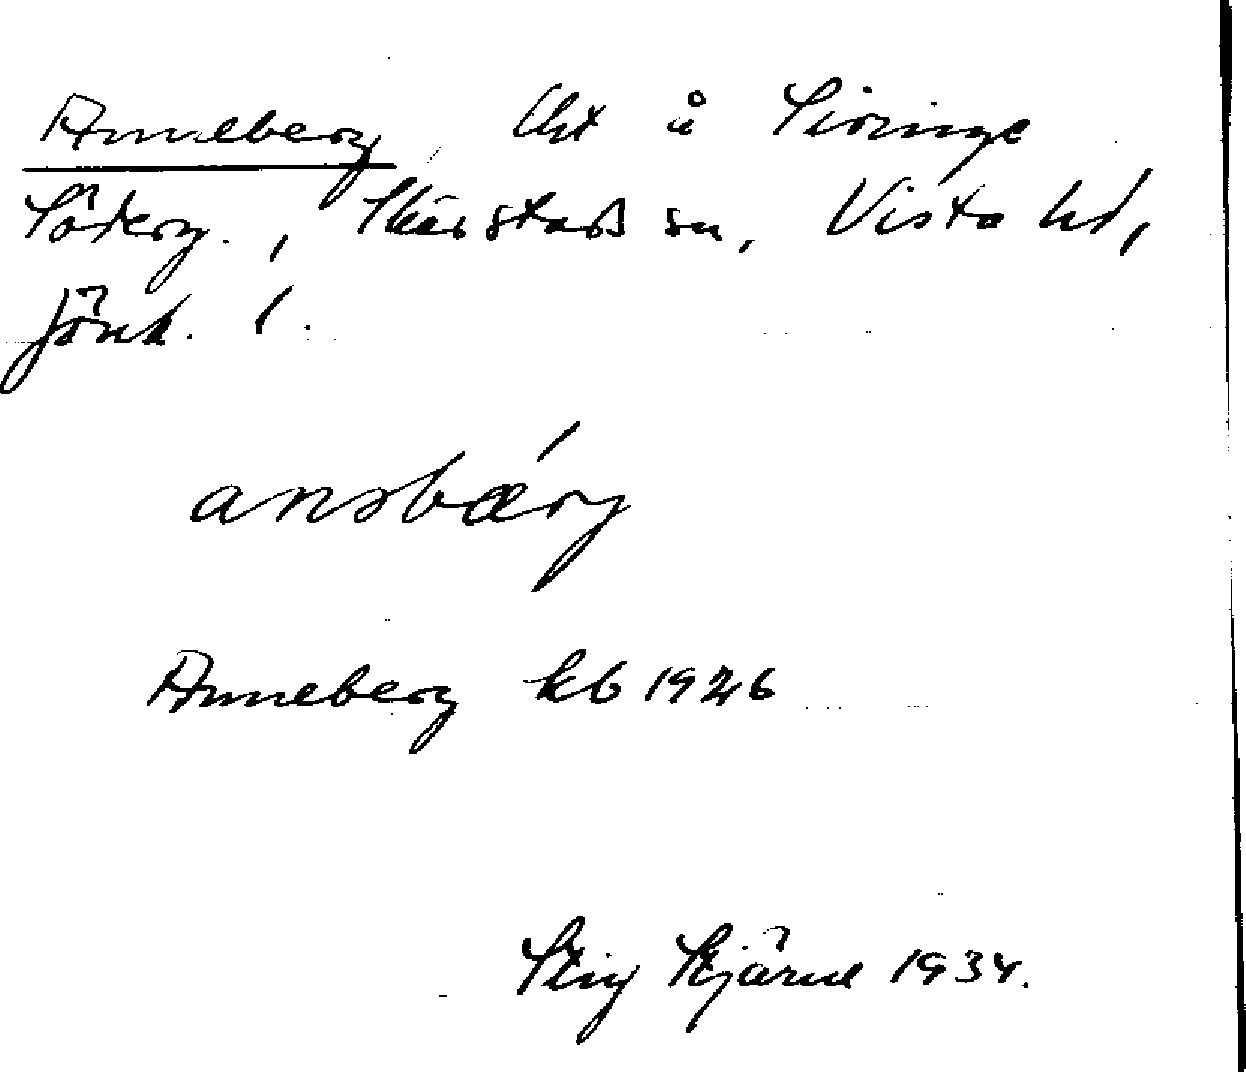 Anneberg, lht å Siringe
Söderg., Skärstads sn, Vista hd,
Jönk. l.
ansbærg
Anneberg kb 1926
Stig Stjärne 1934.